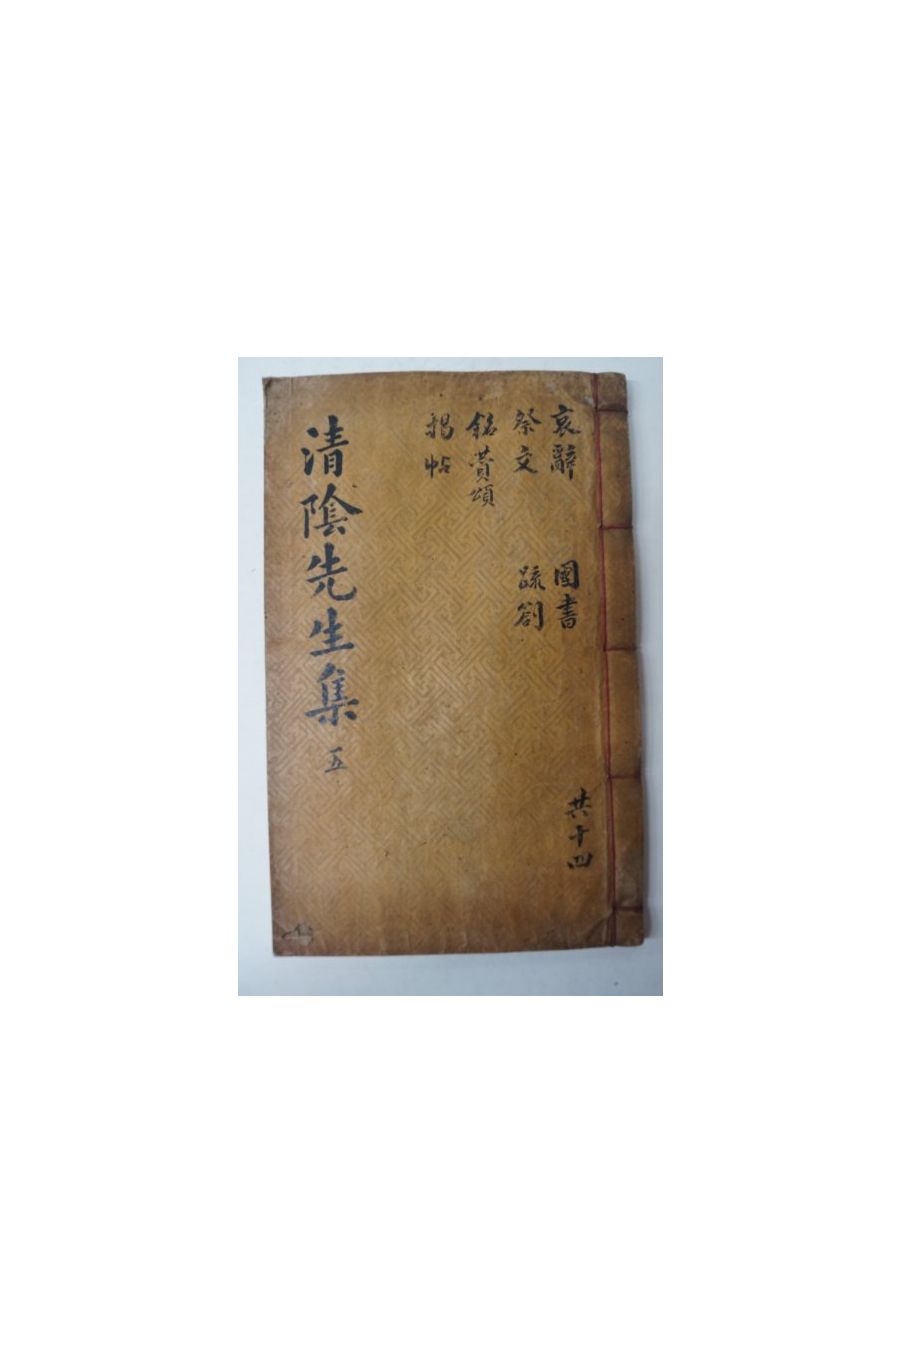 哀辭 國書
祭文 疏劄
銘贊頌
揭帖
清陰先生集 五
共十四